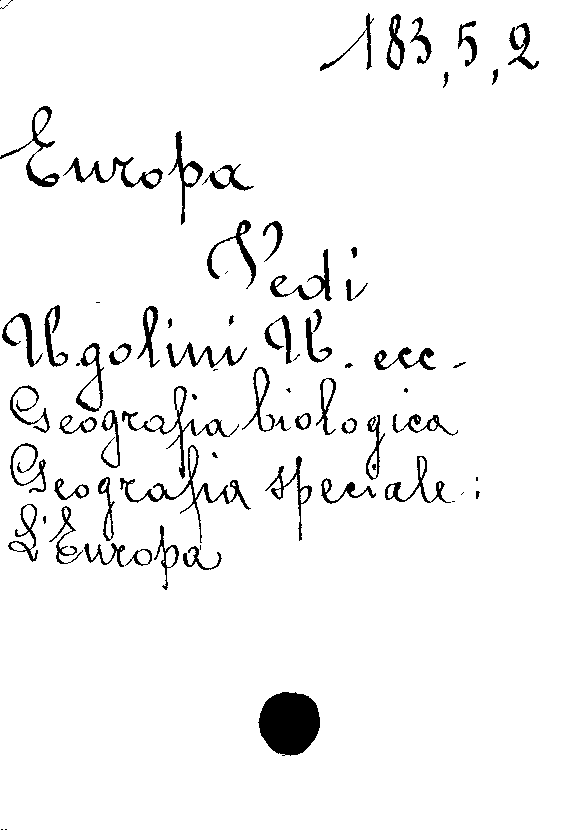 183,5,2
Europa
Vedi
Ugolini U. ecc.
Geografia biologica
Geografia speciale:
L'Europa